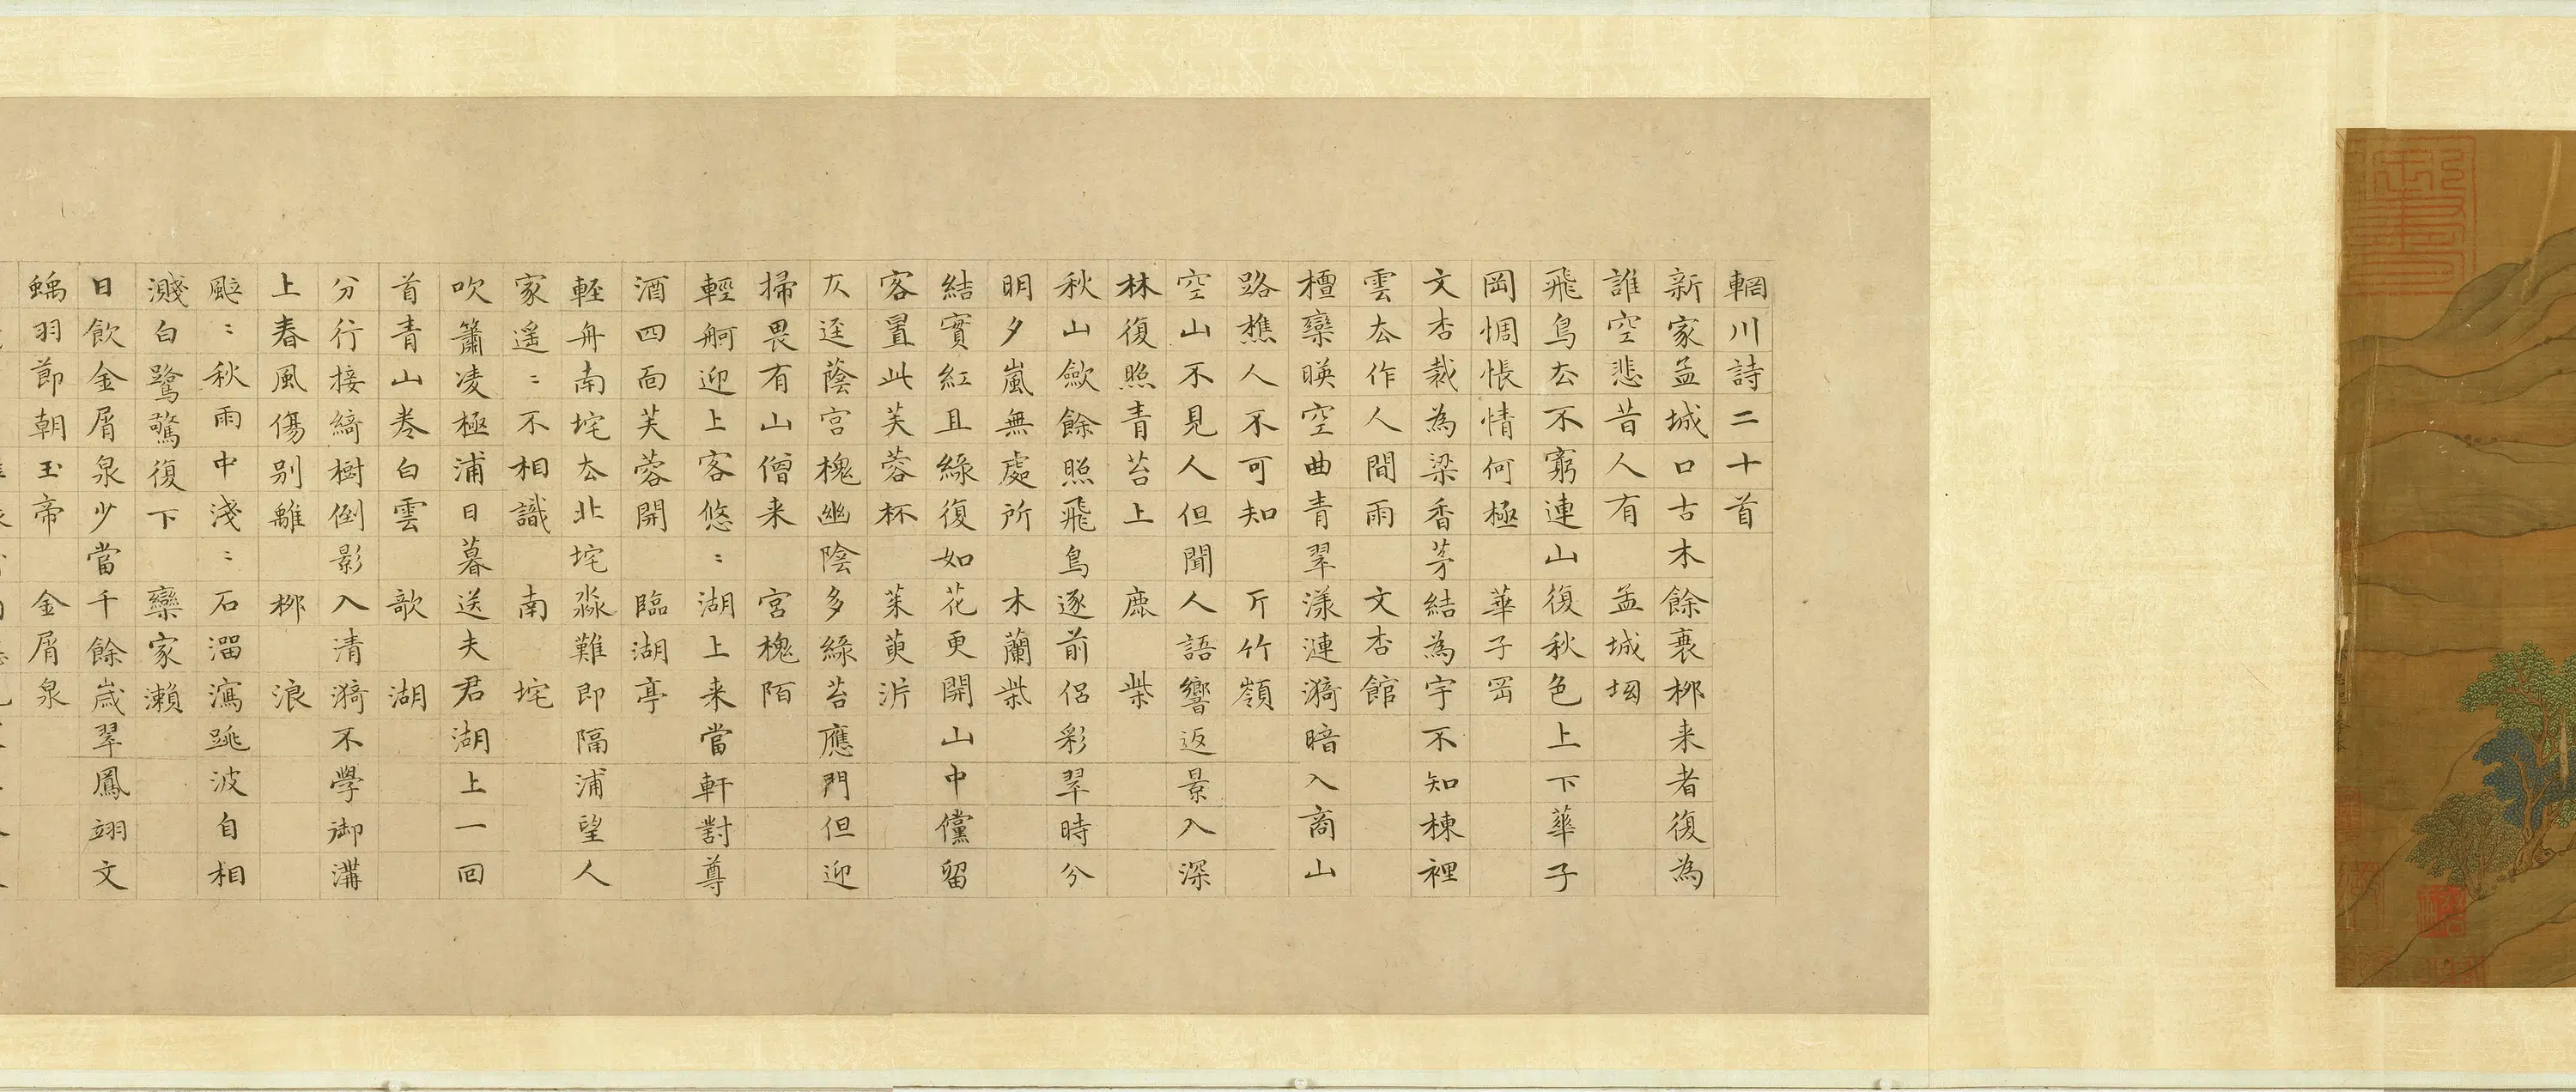 輞川詩二十首
新家孟城口古木餘衰柳来者復為
誰空悲昔人有 孟城坳
飛鳥厺不窮連山復秋色上下華子
岡惆悵情何極 華子岡
文杏裁為梁香茅結為宇不知棟裡
雲厺作人間雨 文杏館
檀欒暎空曲青翠漾漣漪暗入商山
路樵人不可知 斤竹嶺
空山不見人但聞人語響返景入深
林復照青苔上 鹿 柴
秋山歛餘照飛鳥逐前侶彩翠時分
明夕嵐無處所 木蘭柴
結實紅且綠復如花更開山中儻留
客置此芙蓉杯 茱萸沜
仄逕蔭宮槐幽陰多綠苔應門但迎
掃畏有山僧来 宮槐陌
輕舸迎上客悠〻湖上来當軒對尊
酒四面芙蓉開 臨湖亭
輕舟南垞厺北垞淼難即隔浦望人
家遥〻不相識 南 垞
吹簫凌極浦日暮送夫君湖上一回
首青山卷白雲 歌 湖
分行接綺樹倒影入清漪不學御溝
上春風傷别離 柳 浪
颭〻秋雨中淺〻石溜瀉跳波自相
濺白鷺驚復下 欒家瀨
日飲金屑泉少當千餘歲翠鳳翊文
螭羽節朝玉帝 金屑泉